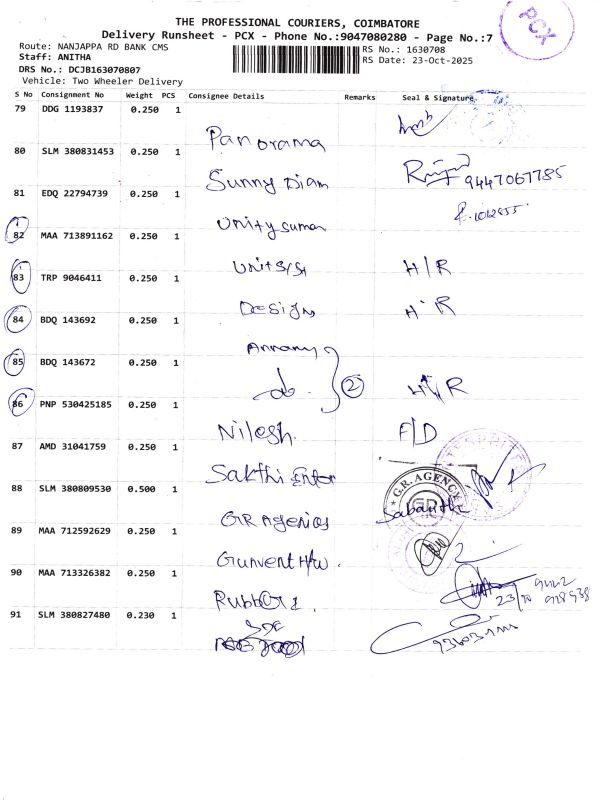 THE PROFESSIONAL COURIERS, COIMBATORE
Delivery Runsheet - PCX - Phone No.:9047080280 - Page No.:7
PCX
Route: NANJAPPA RD BANK CMS
RS No.: 1630708
Staff: ANITHA
RS Date: 23-Oct-2025
DRS No.: DCJB163070807
Vehicle: Two Wheeler Delivery
S No Consignment No Weight PCS Consignee Details Remarks Seal & Signature
79 DDG 1193837 0.250 1
Panorama
80 SLM 380831453 0.250 1
Sunny Diam 9447067785
81 EDQ 22794739 0.250 1
Unity
82 MAA 713891162 0.250 1
H/R
83 TRP 9046411 0.250 1
Design H R
84 BDQ 143692 0.250 1
85 BDQ 143672 0.250 1
do. 2 H/R
86 PNP 530425185 0.250 1
Nilesh. F/D
87 AMD 31041759 0.250 1
Sakthi Enter
88 SLM 380809530 0.500 1
G.R. AGENCY
GR
GR Agenios
89 MAA 712592629 0.250 1
Gunvent H/w.
90 MAA 713326382 0.250 1
23/10
91 SLM 380827480 0.230 1